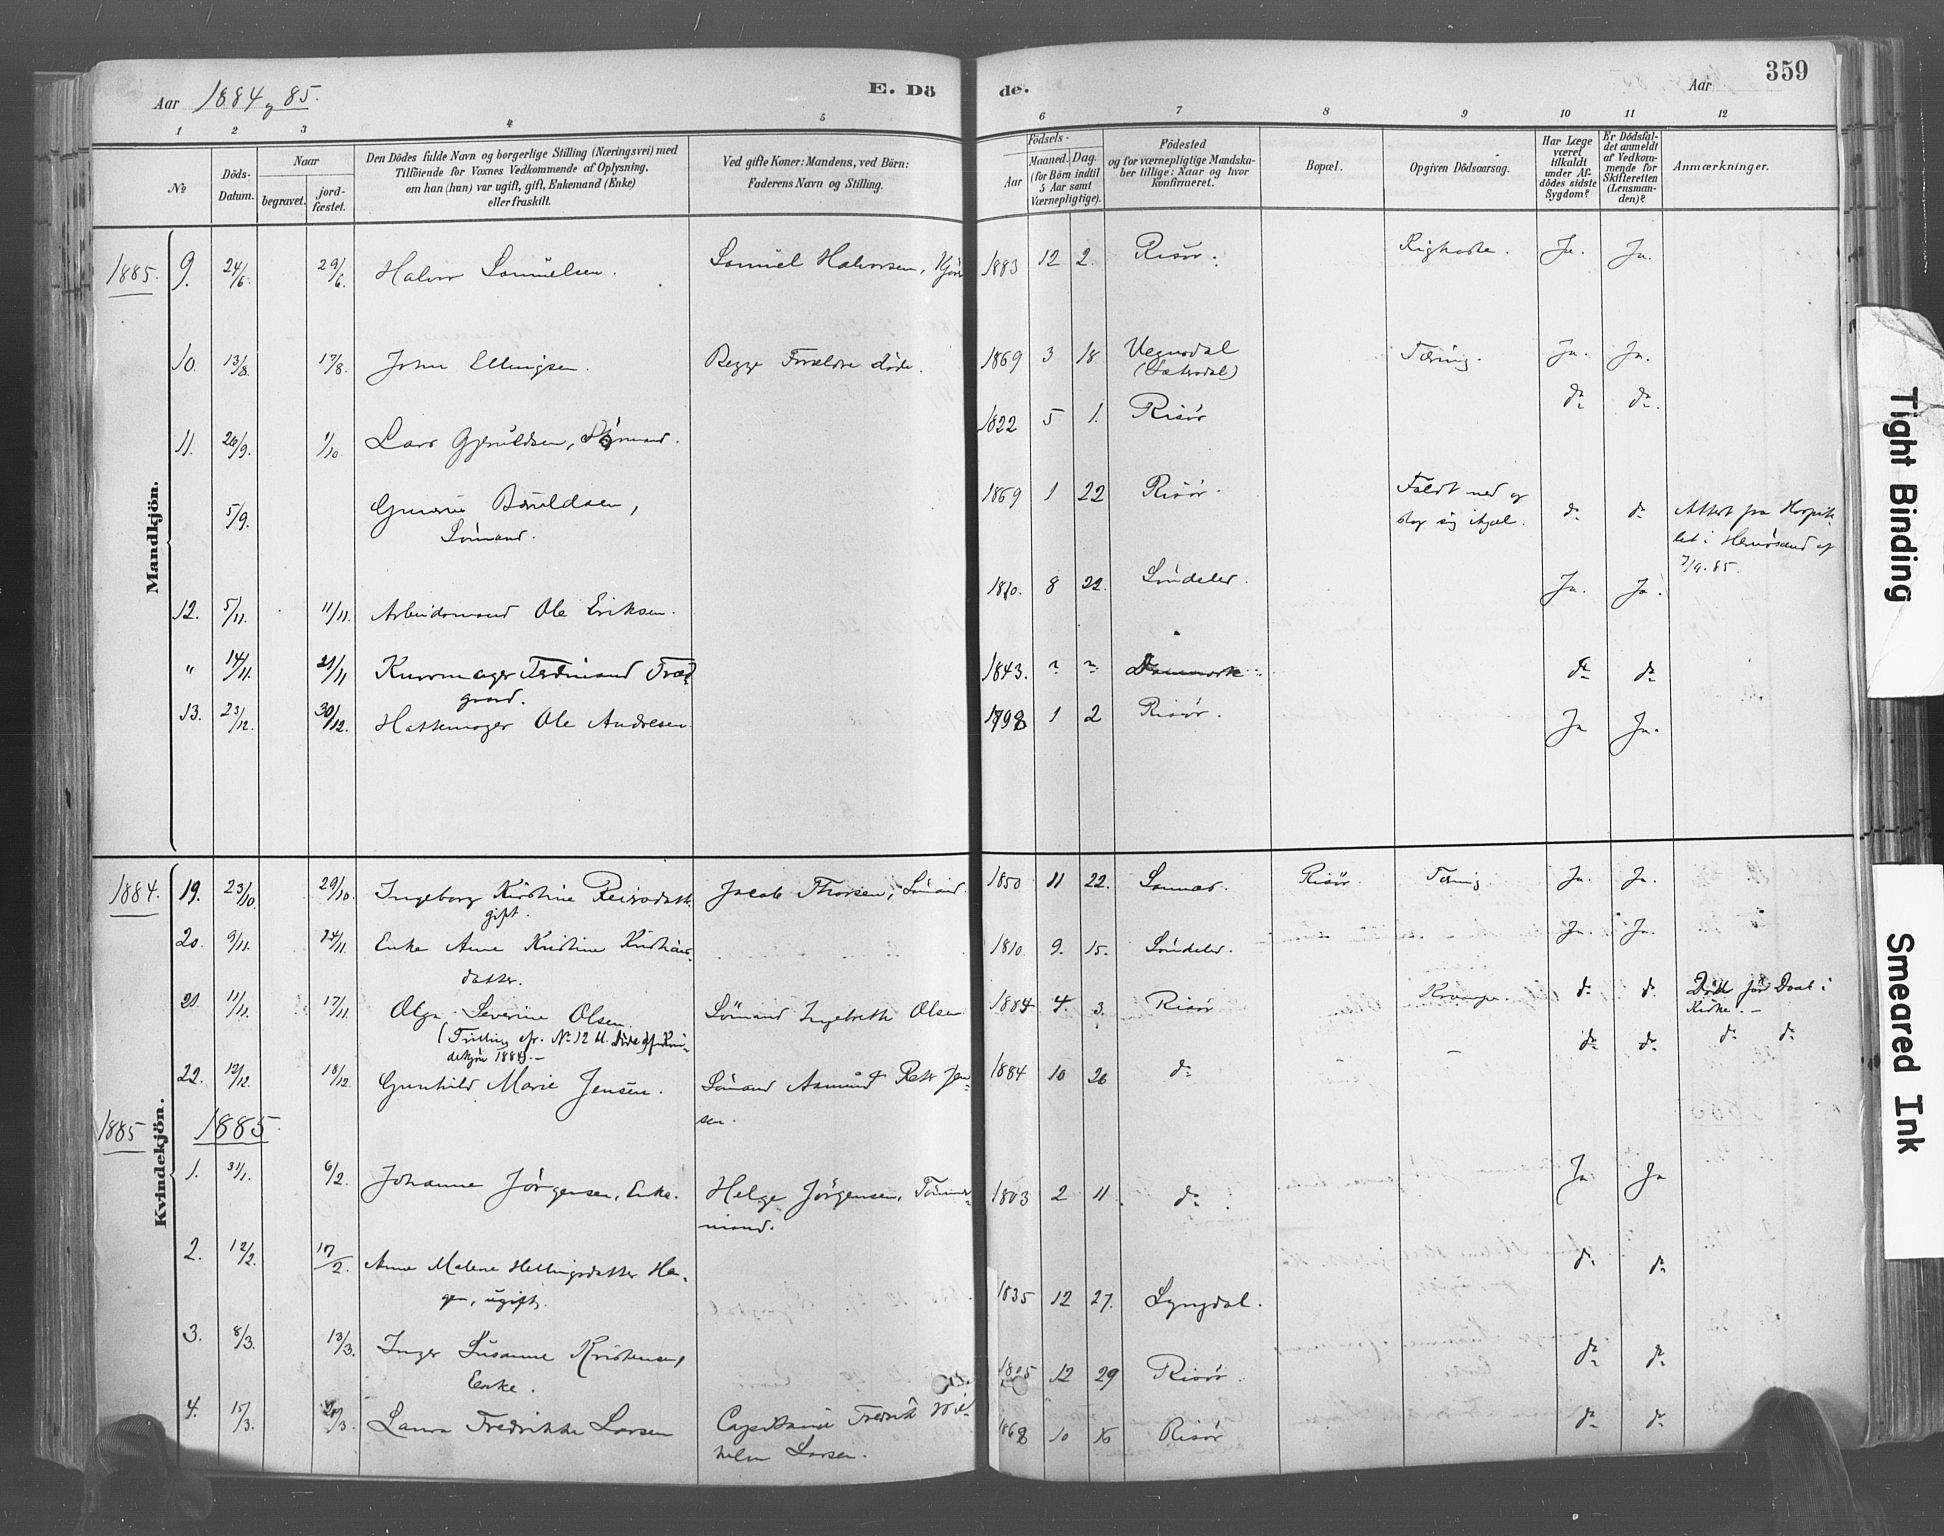 Aar 1884 og 85.
E. Dö
de.
Aar
359
1 2 3 4 5 6 7 8 9 10 11 12
No
Döds-
Datum.
Naar
begravet.
jord-
fæstet.
Den Dödes fulde Navn og borgerlige Stilling (Næringsvei) med
Tilföiende for Voxnes Vedkommende af Oplysning,
om han (hun) var ugift, gift, Enkemand (Enke)
eller fraskilt.
Ved gifte Koner: Mandens, ved Börn:
Faderens Navn og Stilling.
Födsels-
Aar
Maaned. Dag.
(for Börn indtil
5 Aar samt
Værnepligtige).
Födested
og for værnepligtige Mandska-
ber tillige: Naar og hvor
konfirmeret.
Bopæl.
Opgiven Dödsaarsag.
Har Læge
været
tilkaldt
under Af-
dödes sidste
Sygdom?
Er Dödsfal-
det anmeldt
af Vedkom-
mende for
Skifteretten
(Lensman-
den)?
Anmærkninger.
Mandkjön.
1885. 9. 24/6. 29/6. Halvor Samuelsen. Samuel Halvorsen, 1883 12 2. Risør. Ja. Ja.
10. 13/8. 17/8. John Ellingsen. Begge Forældre døde. 1869 3 18 Vegusdal Tæring. Ja. Ja.
(Sætersdal)
11. 26/9. 1/10. Lars Gjeruldsen, Sømand. 1822 5 1. Risør do do.
5/9. Gunerius Baruldsen, 1869 1 22 Risør. Faldt ned og do do Attest fra Hospita-
Sømand. slog sig ihjel. let i Hernøsand af
7/9.85.
12. 5/11. 11/11. Arbeidsmand Ole Eriksen. 1820. 8 22. Søndeled. Ja. Ja.
" 14/11. 21/11 Kurvmager Ferdinand 1843. ? ? Danmark. do do
13. 23/12. 30/12. Hattemager Ole Andresen 1798 1 2 Risør. Ja Ja.
Kvindekjön.
1884. 19. 23/10. 29/10. Ingeborg Kirstine Jacob Thorsen, Sømand. 1850 11 22. Sannes. Risør. Tæring Ja. Ja.
gift.
20. 9/11. 14/11. Enke Anne Kristine Kristians- 1810 9. 15. Søndeled. Ja. Ja.
datter.
21. 11/11. 17/11. Olga Severine Olsen. Sømand Ingebreth Olsen 1884 4. 3. Risør Krampe. do do Død før Daab i
Kirke. —
(Tvilling cfr. No 12 bl. døde af Kvin-
dekjøn 1884). —
22. 12/12. 18/12. Gunhild Marie Jensen. Sømand Asmund Jen- 1884 10 26 do — do do do do
sen.
1885 1885
1. 31/1. 6/2. Johanne Jørgensen, Enke. Helge Jørgensen, Tømmer- 1803 2 11. do Ja Ja
mand.
2. 12/2. 17/2. Anne Malene Hellingsdatter Ha- 1835 12 27. Lyngdal. do do
gen, ugift.
3. 8/3. 13/3. Inger Susanne Kristensen, 1805 12 29 Risør. do do
Enke.
4. 15/3. 20/3. Laura Fredrikke Larsen Capitaine Fredrik Wil- 1868 10 16 Risør do do
helm Larsen.
Tight Binding
Smeared Ink